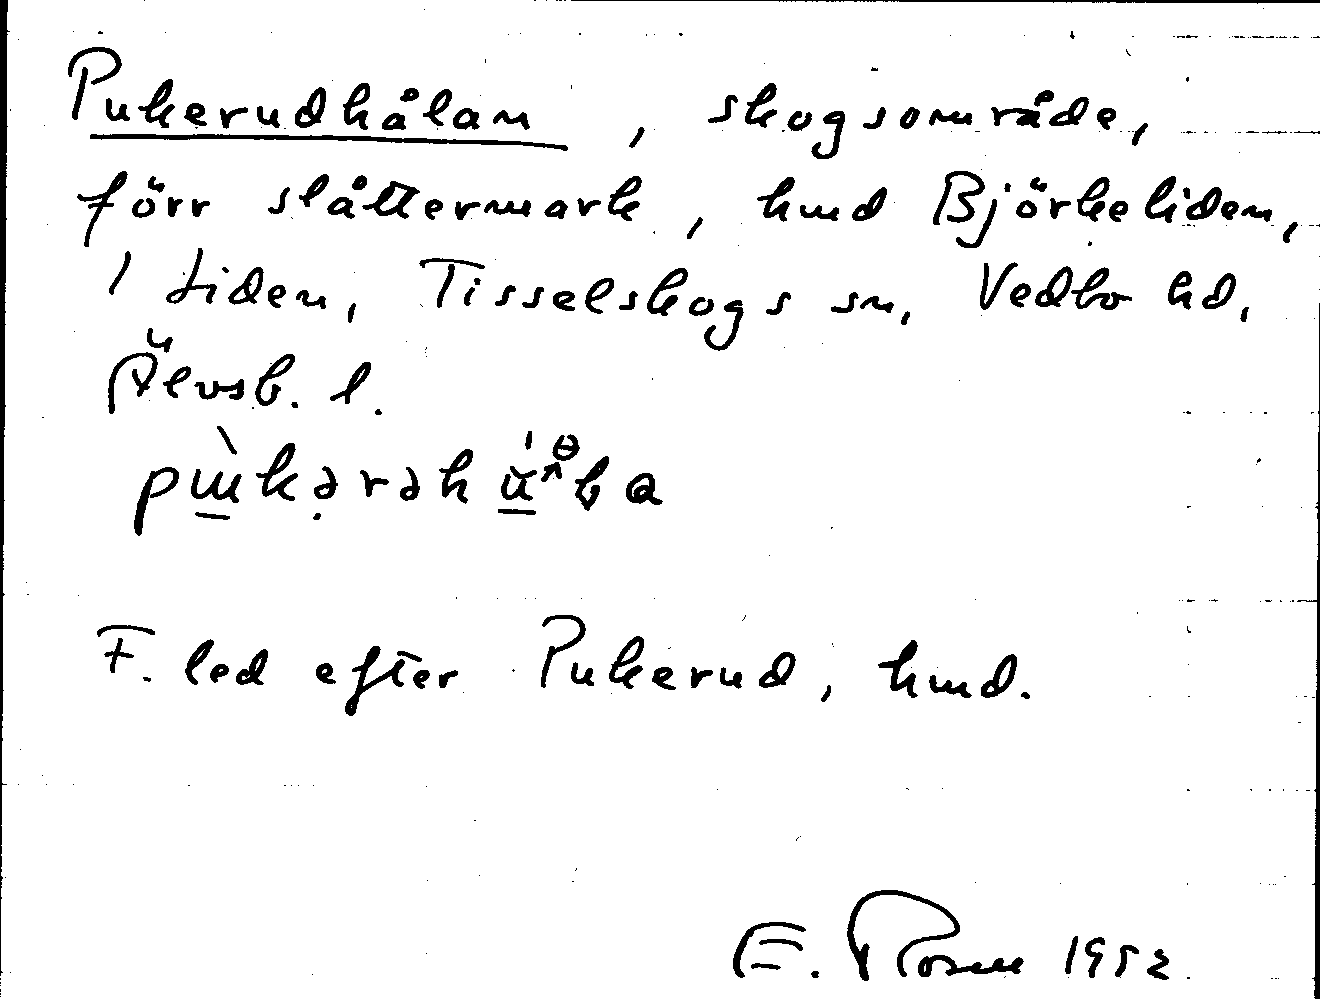 Pukerudhålan, skogsområde,
förr slåttermark, hmd Björkeliden,
1 Liden, Tisselskogs sn, Vedbo hd,
Älvsb. l.
F. led efter Pukerud, hmd.
E. Rosell 1952